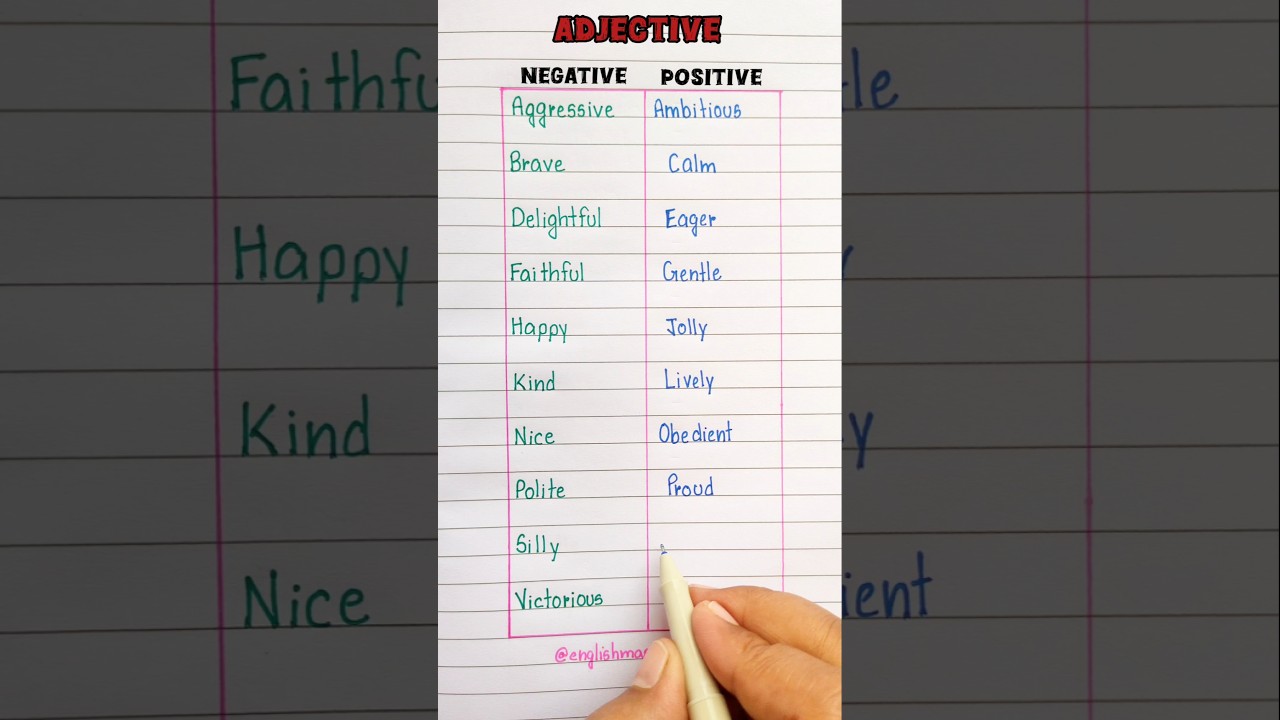 ADJECTIVE
NEGATIVE POSITIVE
Aggressive Ambitious
Brave Calm
Delightful Eager
Faithful Gentle
Happy Jolly
Kind Lively
Nice Obedient
Polite Proud
Silly
Victorious
Happy
Kind
Nice